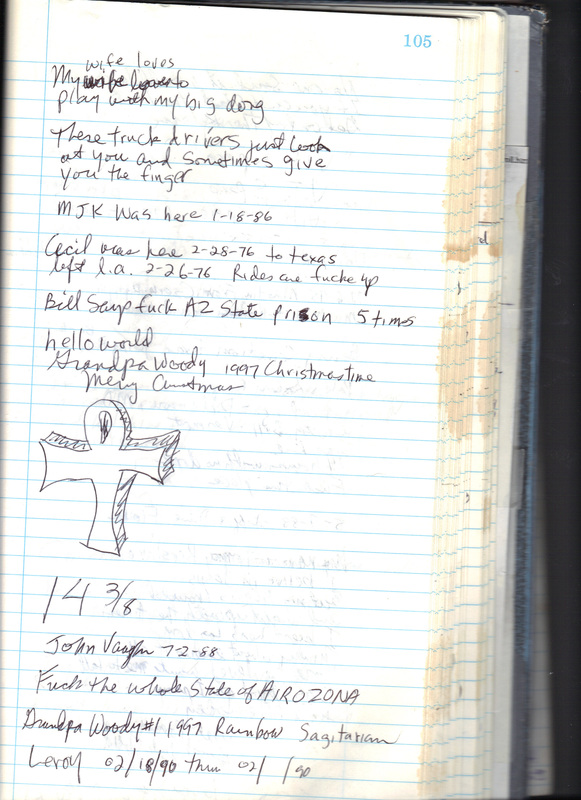 105
wife loves
My to
play with my big dong
These truck drivers just look
at you and sometimes give
you the finger
MJK Was here 1-18-86
Cecil was here 2-28-76 to texas
left L.a. 2-26-76 Rides are fucke up
Bill Says fuck AZ State prison 5 times
hello world
Grandpa Woody 1997 Christmastime
Merry Christmas
14 3/8
John Vaughn 7-2-88
Fuck the whole State of AIROZONA
Grandpa Woody #1 1997 Rainbow Sagitarian
Leroy 02/18/90 thru 02/ /90